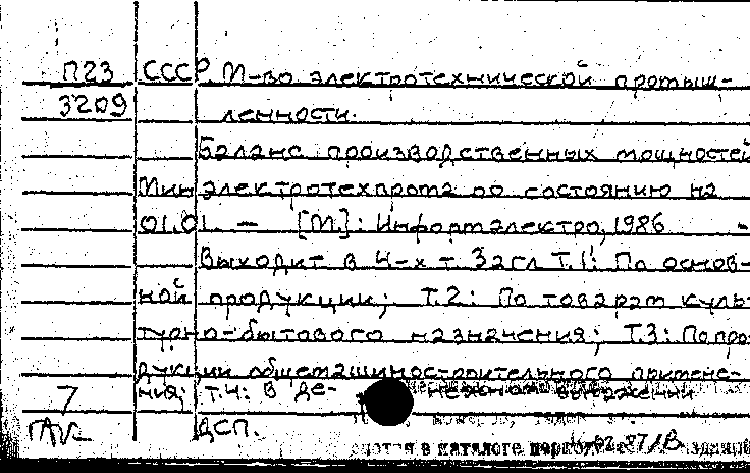 П23 СССР. М-во электротехнической промыш-
3209 ленности.
Баланс производственных мощностей
Минэлектротехпрома по состоянию на
01.01. — [М.]: Информэлектро, 1986 -
Выходит в 4-х т. Загл. Т.1: По основ-
ной продукции; Т.2: По товарам куль-
турно-бытового назначения; Т.3: По про-
дукции общемашиностроительного примене-
ния; Т.4: В де- нежном выражении
7
ДСП.
в каталоге